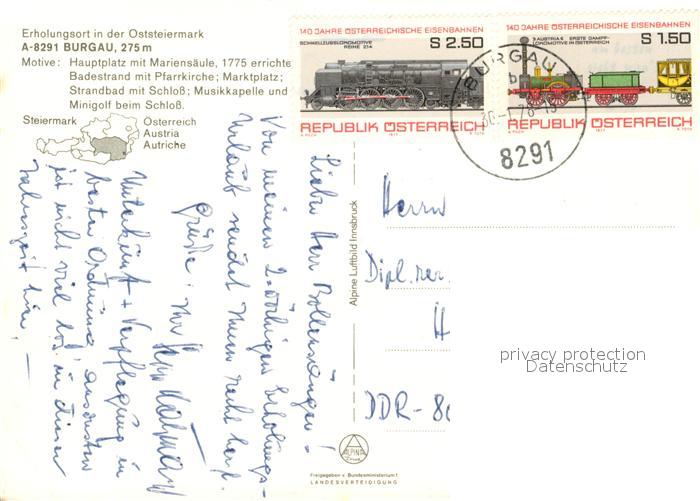 Erholungsort in der Oststeiermark
A-8291 BURGAU, 275 m
Motive: Hauptplatz mit Mariensäule, 1775 errichte
Badestrand mit Pfarrkirche; Marktplatz;
Strandbad mit Schloß; Musikkapelle und
Minigolf beim Schloß.
Steiermark
Österreich
Austria
Autriche
140 JAHRE ÖSTERREICHISCHE EISENBAHNEN
SCHNELLZUGSLOKOMOTIVE
REIHE 214
S 2.50
REPUBLIK ÖSTERREICH
140 JAHRE ÖSTERREICHISCHE EISENBAHNEN
AUSTRIA ERSTE DAMPF-
LOKOMOTIVE IN ÖSTERREICH
S 1.50
REPUBLIK ÖSTERREICH
BURGAU
8291
Lieber Herr
Von meinem 2-wöchigen Erholungs-
Urlaub sendet Ihnen recht herzl.
Grüße Ihr
Unterkunft + Verpflegung in
bester Ordnung, ansonsten
ist nicht viel los in dieser
Jahreszeit hier. —
Alpine Luftbild Innsbruck
Herrn
Dipl.
H
DDR-80
privacy protection
Datenschutz
ALPINE
Freigegeben v. Bundesministerium f.
LANDESVERTEIDIGUNG